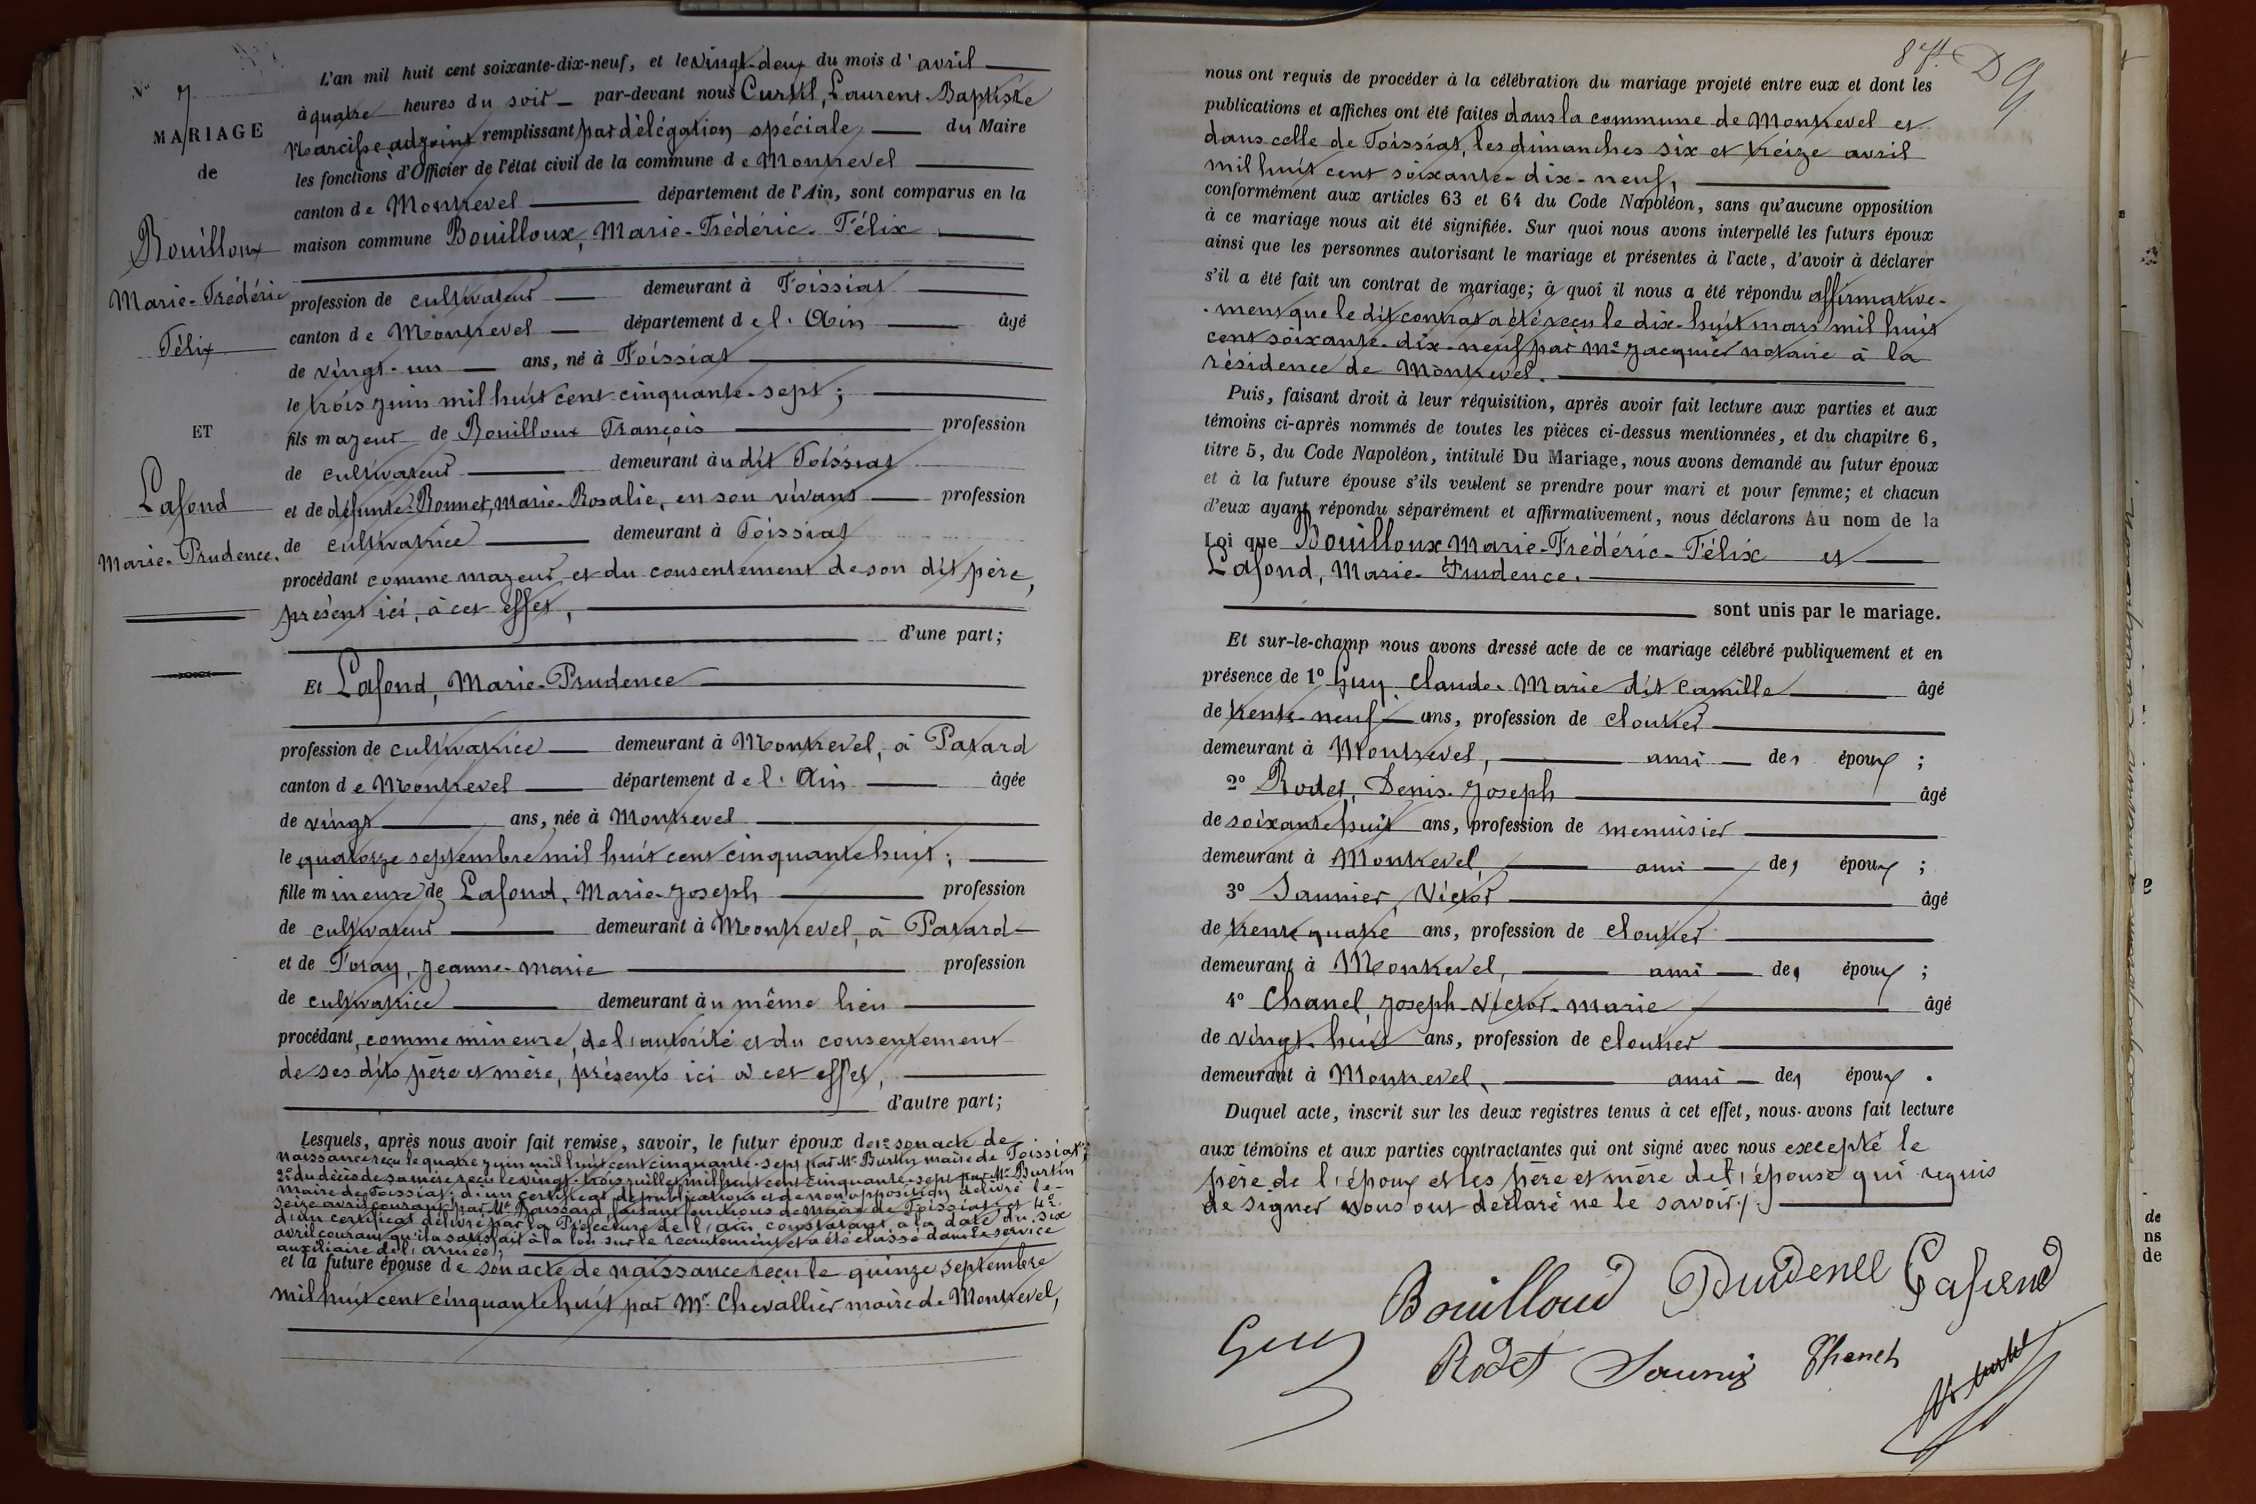 N° 7
MARIAGE
de
Bouilloux
Marie-Frédéric
Félix
ET
Lafond
Marie-Prudence.
L'an mil huit cent soixante-dix-neuf, et le vingt-deux du mois d'avril
à quatre heures du soir par-devant nous Curtil, Laurent-Baptiste
Narcisse adjoint remplissant par délégation spéciale, du Maire
les fonctions d'Officier de l'état civil de la commune de Montrevel
canton de Montrevel département de l'Ain, sont comparus en la
maison commune Bouilloux, Marie-Frédéric-Félix
profession de cultivateur demeurant à Foissiat
canton de Montrevel département de l'Ain âgé
de vingt-un ans, né à Foissiat
le trois juin mil huit cent cinquante-sept;
fils majeur de Bouilloux François profession
de cultivateur demeurant àu dit Foissiat
et de défunte Bonnet, Marie-Rosalie, en son vivant profession
de cultivatrice demeurant à Foissiat
procédant comme majeur, et du consentement de son dit père,
présent ici, à cet effet,
d'une part;
Et Lafond, Marie-Prudence
profession de cultivatrice demeurant à Montrevel, à Patard
canton de Montrevel département de l'Ain âgée
de vingt ans, née à Montrevel
le quatorze septembre mil huit cent cinquante huit;
fille mineure de Lafond, Marie-Joseph profession
de cultivateur demeurant à Montrevel, à Patard
et de Foray, Jeanne-Marie profession
de cultivatrice demeurant àu même lieu
procédant, comme mineure, de l'autorité et du consentement
de ses dits père et mère, présents ici à cet effet,
d'autre part;
Lesquels, après nous avoir fait remise, savoir, le futur époux de 1° son acte de
naissance reçu le quatre juin mil huit cent cinquante-sept par Mr Burtin maire de Foissiat;
2° du décès de sa mère reçu le vingt-trois juillet mil huit cent cinquante-sept par Mr Burtin
maire de Foissiat; d'un certificat de publications et de non opposition délivré le
seize avril courant par Mr faisant fonctions de maire de Foissiat et 4°
d'un certificat délivré par la Préfecture de l'Ain constatant, à la date du six
avril courant qu'il a satisfait à la loi sur le recrutement et a été classé dans le service
auxiliaire de l'armée;
et la future épouse de son acte de naissance reçu le quinze septembre
mil huit cent cinquante huit par Mr. Chevallier maire de Montrevel,
nous ont requis de procéder à la célébration du mariage projeté entre eux et dont les
publications et affiches ont été faites dans la commune de Montrevel et
dans celle de Foissiat, les dimanches six et treize avril
mil huit cent soixante-dix-neuf,
conformément aux articles 63 et 64 du Code Napoléon, sans qu'aucune opposition
à ce mariage nous ait été signifiée. Sur quoi nous avons interpellé les futurs époux
ainsi que les personnes autorisant le mariage et présentes à l'acte, d'avoir à déclarer
s'il a été fait un contrat de mariage; à quoi il nous a été répondu affirmative-
-ment que le dit contrat a été reçu le dix-huit mars mil huit
cent soixante-dix-neuf par Me Jacquier notaire à la
résidence de Montrevel.
Puis, faisant droit à leur réquisition, après avoir fait lecture aux parties et aux
témoins ci-après nommés de toutes les pièces ci-dessus mentionnées, et du chapitre 6,
titre 5, du Code Napoléon, intitulé Du Mariage, nous avons demandé au futur époux
et à la future épouse s'ils veulent se prendre pour mari et pour femme; et chacun
d'eux ayant répondu séparément et affirmativement, nous déclarons Au nom de la
Loi que Bouilloux, Marie-Frédéric-Félix et
Lafond, Marie-Prudence.
sont unis par le mariage.
Et sur-le-champ nous avons dressé acte de ce mariage célébré publiquement et en
présence de 1° Guy, Claude-Marie dit Camille âgé
de trente-neuf ans, profession de cloutier
demeurant à Montrevel, ami des époux;
2° Rodet, Denis-Joseph âgé
de soixante huit ans, profession de menuisier
demeurant à Montrevel, ami des époux;
3° Saunier, Victor âgé
de trente quatre ans, profession de cloutier
demeurant à Montrevel, ami des époux;
4° Chanel, Joseph-Victor-Marie âgé
de vingt-huit ans, profession de cloutier
demeurant à Montrevel, ami des époux.
Duquel acte, inscrit sur les deux registres tenus à cet effet, nous avons fait lecture
aux témoins et aux parties contractantes qui ont signé avec nous excepté le
père de l'époux et les père et mère de l'épouse qui requis
de signer nous ont déclaré ne le savoir.
Bouilloud Prudence Lafond
Guy Rodet Saunier Chanel
de
ns
de